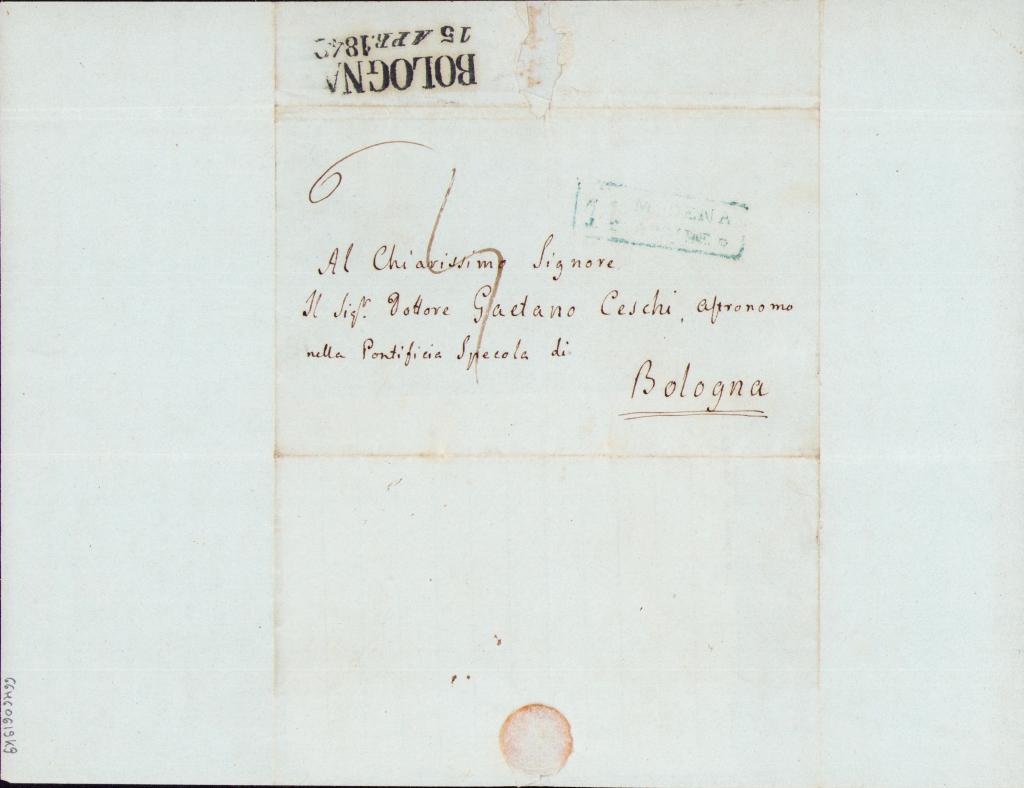 BOLOGNA
15 APR. 184
7
Al Chiarissimo Signore
Il Sigr. Dottore Gaetano Ceschi, Astronomo
nella Pontificia Specola di
Bologna